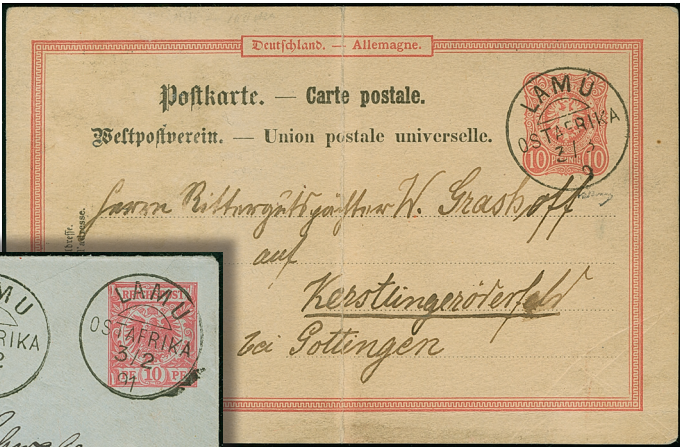 Deutschland. — Allemagne.
Postkarte. — Carte postale.
Weltpostverein. — Union postale universelle.
LAMU
OSTAFRIKA
3/2
10 PFENNIG 10
Herrn Rittergutspächter W. Grashoff
auf
Kerstlingeröderfeld
bei Gottingen
LAMU
OSTAFRIKA
3/2
91
REICHSPOST
PF 10 PF